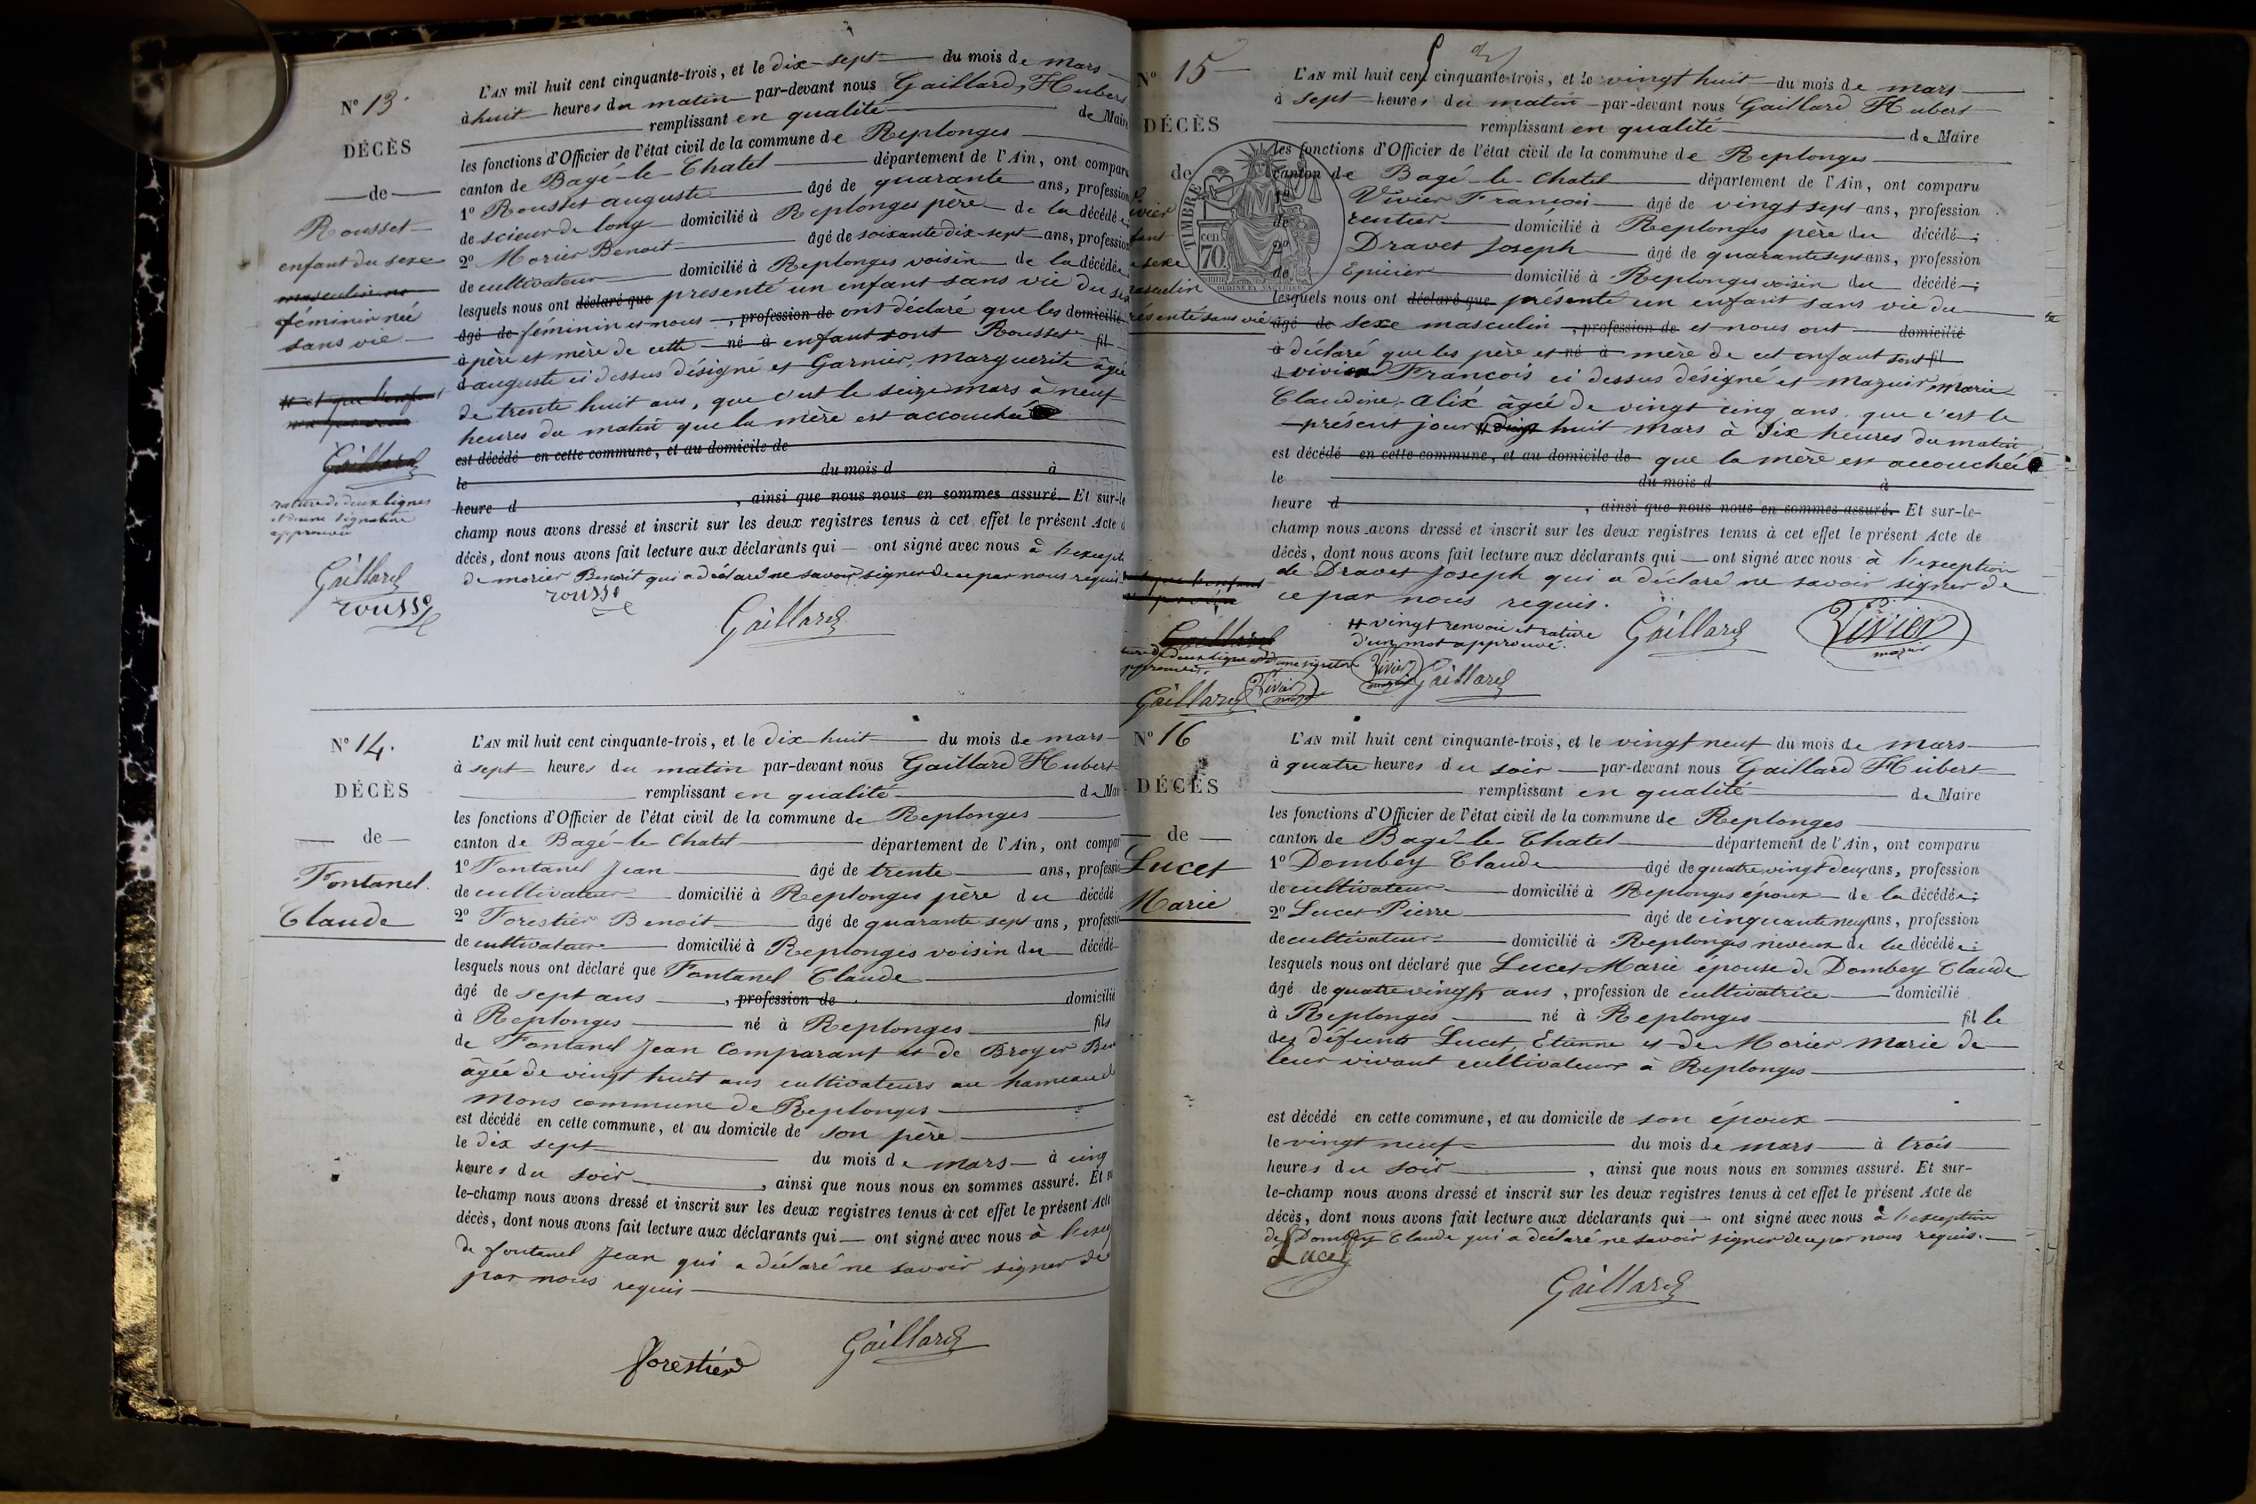 N° 13.
DÉCÈS
de
Rousset
enfant du sexe
féminin née
sans vie
rature de deux lignes
et d'une signature
approuvée
Gaillard
rousse
L'AN mil huit cent cinquante-trois, et le dix-sept du mois de mars
à huit heures du matin par-devant nous Gaillard, Hubert
remplissant en qualité de Maire
les fonctions d'Officier de l'état civil de la commune de Replonges
canton de Bagé-le-Chatel département de l'Ain, ont comparu
1° Rousset auguste âgé de quarante ans, profession
de scieur de long domicilié à Replonges père de la décédée
2° Morier Benoit âgé de soixante dix-sept ans, profession
de cultivateur domicilié à Replonges voisin de la décédée
lesquels nous ont déclaré que presenté un enfant sans vie du sexe
âgé de féminin et nous , profession de ont déclaré que les domicilié
à père et mère de cette né à enfant sont Rousset fil
d auguste ci dessus désigné et Garnier, Marguerite âgée
de trente huit ans, que c'est le seize mars à neuf
heures du matin que la mère est accouchée
est décédé en cette commune, et au domicile de
le du mois d à
heure d , ainsi que nous nous en sommes assuré. Et sur-le
champ nous avons dressé et inscrit sur les deux registres tenus à cet effet le présent Acte d
décès, dont nous avons fait lecture aux déclarants qui ont signé avec nous à l'except
de morier Benoit qui a déclaré ne savoir signer de ce par nous requis
rousse
Gaillard
N° 14.
DÉCÈS
de
Fontanel
Claude
L'AN mil huit cent cinquante-trois, et le dix huit du mois de mars
à sept heures du matin par-devant nous Gaillard Hubert
remplissant en qualité de Mai
les fonctions d'Officier de l'état civil de la commune de Replonges
canton de Bagé-le-Chatel département de l'Ain, ont compar
1° Fontanel Jean âgé de trente ans, professio
de cultivateur domicilié à Replonges père du décédé
2° Forestier Benoit âgé de quarante sept ans, professio
de cultivateur domicilié à Replonges voisin du décédé
lesquels nous ont déclaré que Fontanel Claude
âgé de sept ans , profession de domicilié
à Replonges né à Replonges fils
de Fontanel Jean Comparant et de Broyer Ben
âgée de vingt huit ans cultivateurs au hameau d
Mons commune de Replonges
est décédé en cette commune, et au domicile de son père
le dix sept du mois de mars à cinq
heures du soir , ainsi que nous nous en sommes assuré. Et su
le-champ nous avons dressé et inscrit sur les deux registres tenus à cet effet le présent Acte
décès, dont nous avons fait lecture aux déclarants qui ont signé avec nous à l'excep
de fontanel Jean qui a déclaré ne savoir signer de
par nous requis
forestier
Gaillard
N° 15
DÉCÈS
de
ivier
fant
sexe
masculin
résenté sans vie
TIMBRE
70
cen
L'AN mil huit cent cinquante-trois, et le vingt huit du mois de mars
à sept heures du matin par-devant nous Gaillard Hubert
remplissant en qualité de Maire
les fonctions d'Officier de l'état civil de la commune de Replonges
canton de Bagé-le-Chatel département de l'Ain, ont comparu
1° Vivier François âgé de vingt sept ans, profession
de rentier domicilié à Replonges père du décédé;
2° Dravet Joseph âgé de quarante sept ans, profession
de Epicier domicilié à Replonges voisin du décédé;
lesquels nous ont déclaré que présenté un enfant sans vie du
âgé de sexe masculin , profession de et nous ont domicilié
à déclaré que les père et né à mère de cet enfant sont fil
d vivier François ci dessus désigné et mazuir, Marie
Claudine-alix âgée de vingt cinq ans que c'est le
présent jour # huit mars à Six heures du matin
est décédé en cette commune, et au domicile de que la mère est accouchée
le du mois d à
heure d , ainsi que nous nous en sommes assuré. Et sur-le-
champ nous avons dressé et inscrit sur les deux registres tenus à cet effet le présent Acte de
décès, dont nous avons fait lecture aux déclarants qui ont signé avec nous à l'exception
de Dravet Joseph qui a déclaré ne savoir signer de
ce par nous requis.
# vingt renvoi et rature
d'un mot approuvé.
Gaillard
Vivier
mazuir
Vivier
mazuir
Gaillard
Gaillard
Vivier
N° 16
DÉCÈS
de
Lucet
Marie
L'AN mil huit cent cinquante-trois, et le vingt neuf du mois de mars
à quatre heures du soir par-devant nous Gaillard Hubert
remplissant en qualité de Maire
les fonctions d'Officier de l'état civil de la commune de Replonges
canton de Bagé-le-Chatel département de l'Ain, ont comparu
1° Dombey Claude âgé de quatre vingt deux ans, profession
de cultivateur domicilié à Replonges époux de la décédée;
2° Lucet Pierre âgé de cinquante neuf ans, profession
de cultivateur domicilié à Replonges neveux de la décédée;
lesquels nous ont déclaré que Lucet Marie épouse de Dombey Claude
âgé de quatre vingts ans , profession de cultivatrice domicilié
à Replonges né à Replonges fil le
des défunts Lucet, Etienne et de Morier Marie de
leur vivant cultivateurs à Replonges
est décédé en cette commune, et au domicile de son époux
le vingt neuf du mois de mars à trois
heures du soir , ainsi que nous nous en sommes assuré. Et sur-
le-champ nous avons dressé et inscrit sur les deux registres tenus à cet effet le présent Acte de
décès, dont nous avons fait lecture aux déclarants qui ont signé avec nous à l'exception
de Dombey Claude qui a déclaré ne savoir signer de ce par nous requis.
Lucet
Gaillard